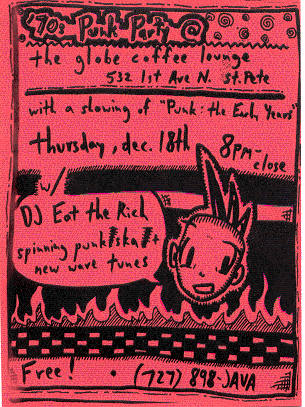 '70s Punk Party @
the globe coffee lounge
532 1st Ave N. St. Pete
with a showing of "Punk: the Early Years"
thursday, dec. 18th
8pm-
close
w/
DJ Eat the Rich
spinning punk/ska/+
new wave tunes
Free! • (727) 898-JAVA